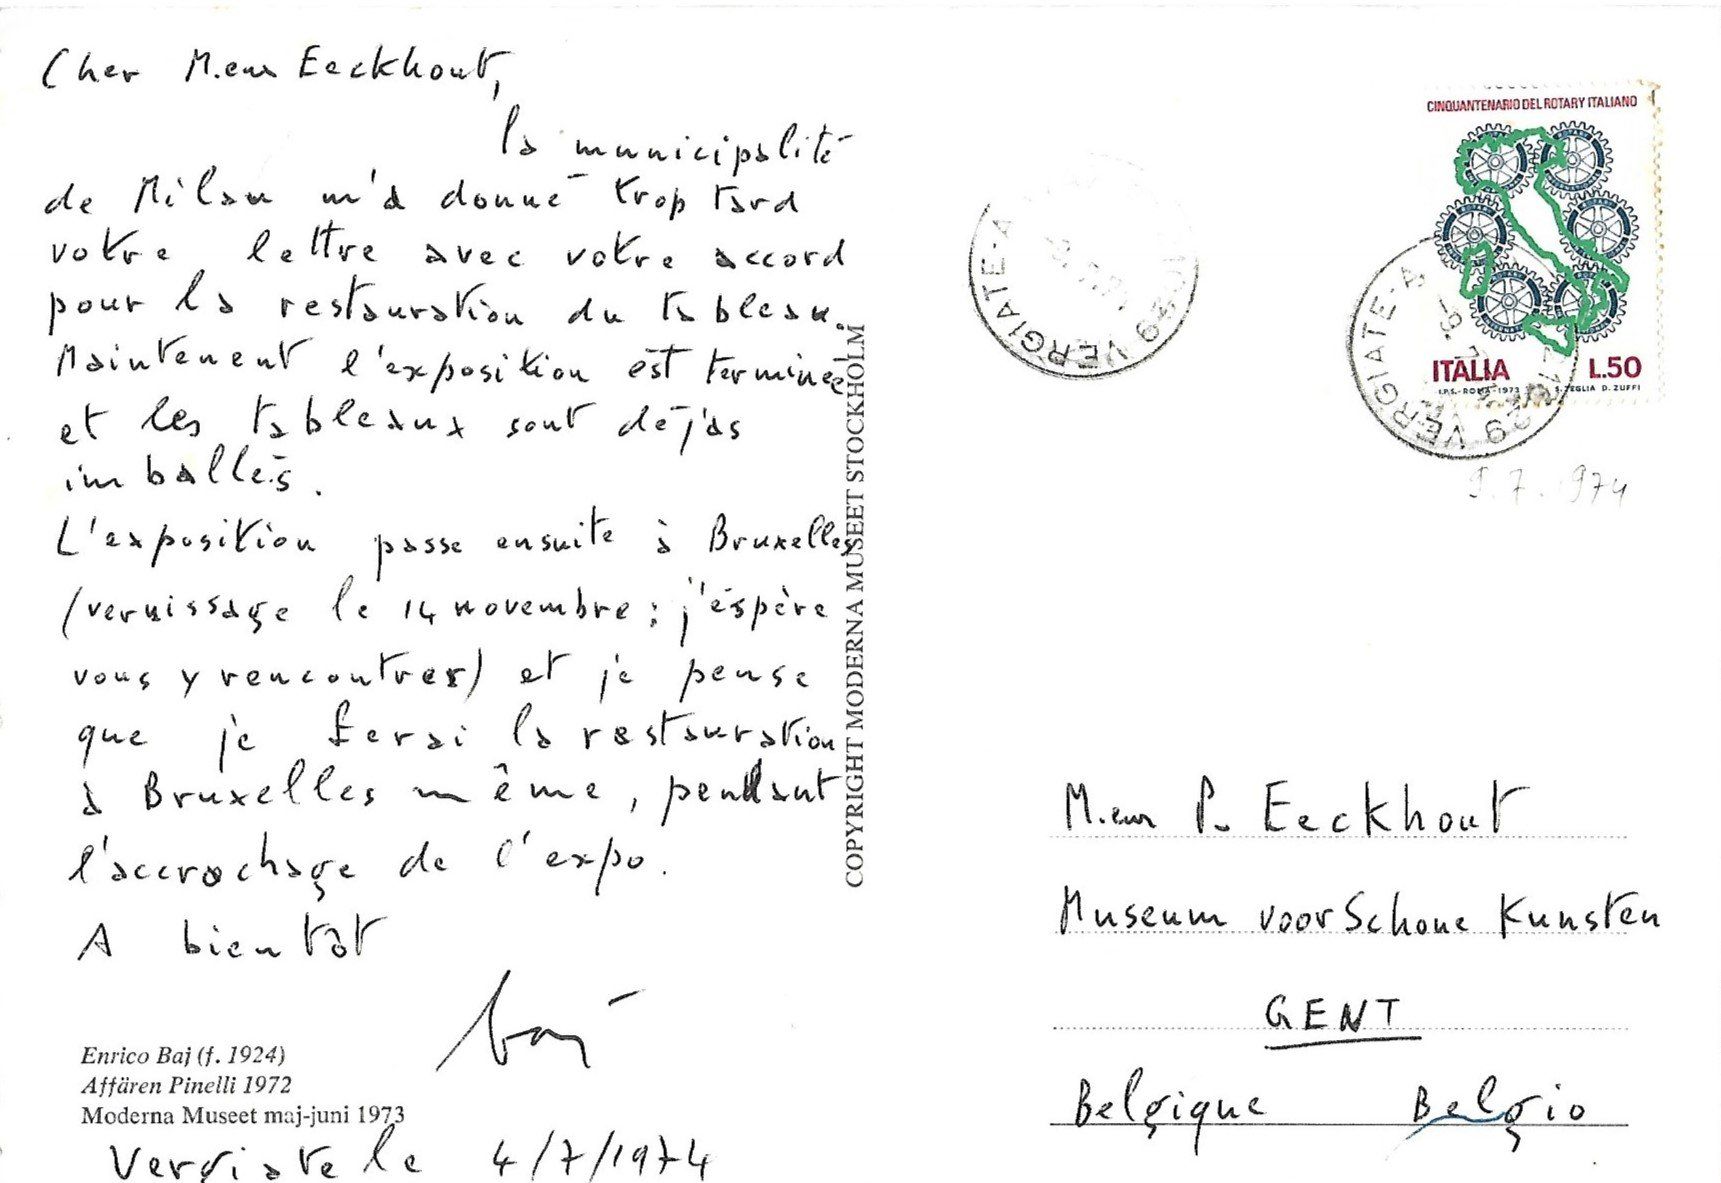 Cher M.eur Eeckhout,
la municipalité
de Milan m'a donné trop tard
votre lettre avec votre accord
pour la restauration du tableau.
Maintenent l'exposition est terminée
et les tableaux sont déjas
imballés.
L'exposition passe ensuite à Bruxelles
(vernissage le 14 novembre: j'éspère
vous y rencontrer) et je pense
que je ferai la restauration
à Bruxelles même, pendant
l'accrochage de l'expo.
A bientôt
baj
Enrico Baj (f. 1924)
Affären Pinelli 1972
Moderna Museet maj-juni 1973
Vergiate le 4/7/1974
COPYRIGHT MODERNA MUSEET STOCKHOLM
CINQUANTENARIO DEL ROTARY ITALIANO
ITALIA L.50
I.P.S.-ROMA-1973 S.TEGLIA D. ZUFFI
VERGIATE
VERGIATE
9.7.1974
M.eur P. Eeckhout
Museum voor Schone Kunsten
GENT
Belgique Belgio